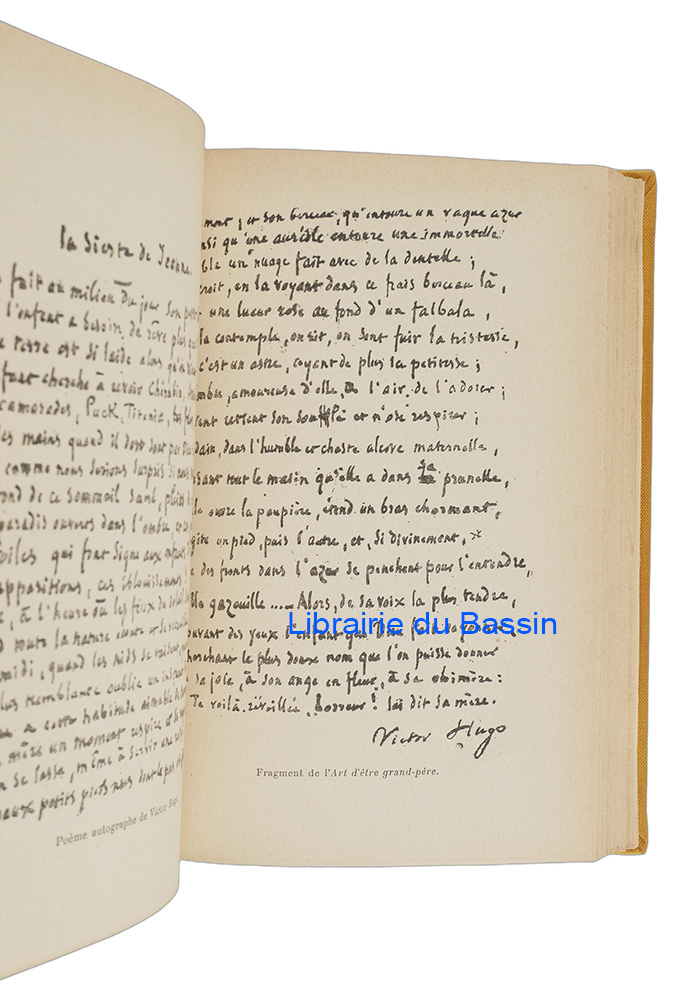 la Sieste de Jeanne
fait au milieu du jour son
l'enfant a besoin de rêve plus
terre est si laide alors qu'on
cherche à revoir Chérubin,
camarades, Puck, Titania, les fées
mains quand il dort sont par Dieu
comme nous serions surpris si nous
fond de ce sommeil sacré, plein
paradis ouverts dans l'ombre et ces
étoiles qui font signe aux enfants
apparitions, ces éblouissements
à l'heure où les feux du soleil
toute la nature écoute et se recueille
midi, quand les nids se taisent, quand
plus tremblante oublie un instant
a cette habitude aimable de
mère un moment respire et
on se lasse, même à servir une
beaux petits pieds nus dont le pas
Poème autographe de Victor Hugo
ment ; et son berceau, qu'entoure un vague azur
nsi qu'une auréole entoure une immortelle
ble un nuage fait avec de la dentelle ;
croit, en la voyant dans ce frais berceau là,
une lueur rose au fond d'un falbala,
la contemple, on rit, on sent fuir la tristesse,
c'est un astre, ayant de plus la petitesse ;
ombre, amoureuse d'elle, a l'air de l'adorer ;
vent retient son souffle et n'ose respirer ;
dain, dans l'humble et chaste alcove maternelle,
sant tout le matin qu'elle a dans sa prunelle,
le ouvre la paupière, étend un bras charmant,
gite un pied, puis l'autre, et, si divinement,
e des fronts dans l'azur se penchent pour l'entendre,
Elle gazouille .... – Alors, de sa voix la plus tendre,
ouvant des yeux l'enfant que Dieu fait rayonner
Librairie du Bassin
herchant le plus doux nom que l'on puisse donner
sa joie, à son ange en fleur, à sa chimère :
Te voilà réveillée, horreur ! lui dit sa mère.
Victor Hugo
Fragment de l'Art d'être grand-père.